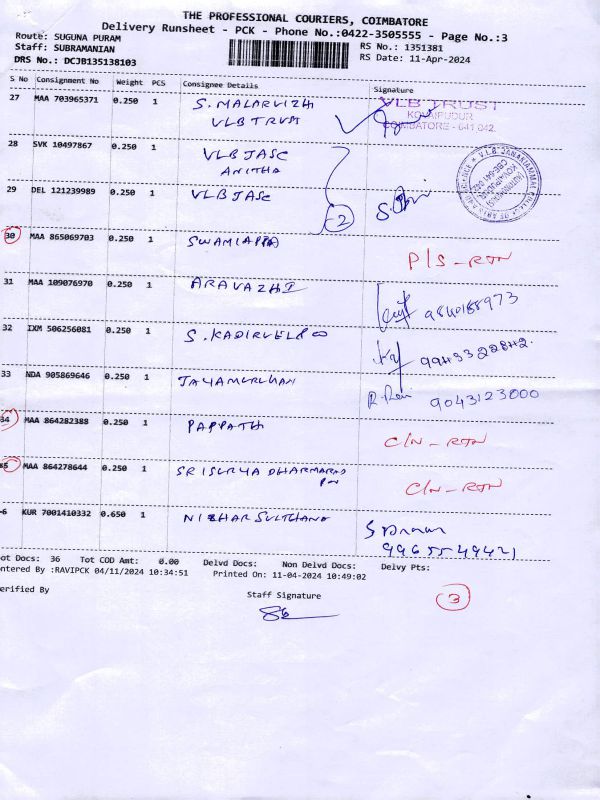 THE PROFESSIONAL COURIERS, COIMBATORE
Delivery Runsheet - PCK - Phone No.:0422-3505555 - Page No.:3
Route: SUGUNA PURAM
Staff: SUBRAMANIAN
DRS No.: DCJB135138103
RS No.: 1351381
RS Date: 11-Apr-2024
S No Consignment No Weight PCS Consignee Details Signature
27 MAA 703965371 0.250 1 S. MALARVIZHI
VLB TRUST
VLB TRUST
KOVAIPUDUR
COIMBATORE - 641 042.
28 SVK 10497867 0.250 1 VLB JASC
ANITHA
29 DEL 121239989 0.250 1 VLB JASC
2
30 MAA 865069703 0.250 1 SWAMIAPPA P/S - RTN
31 MAA 109076970 0.250 1 ARAVAZHI 9840188973
32 IXM 506256081 0.250 1 S. KADIRVEL
33 NDA 905869646 0.250 1 JAYAMURUHAN 9043123000
34 MAA 864282388 0.250 1 PAPPATHI C/N - RTN
35 MAA 864278644 0.250 1 SRISURYA C/N - RTN
-6 KUR 7001410332 0.650 1 NIZHAR SULTHANA
9965549421
ot Docs: 36 Tot COD Amt: 0.00 Delvd Docs: Non Delvd Docs: Delvy Pts:
ntered By :RAVIPCK 04/11/2024 10:34:51 Printed On: 11-04-2024 10:49:02
erified By
Staff Signature
3